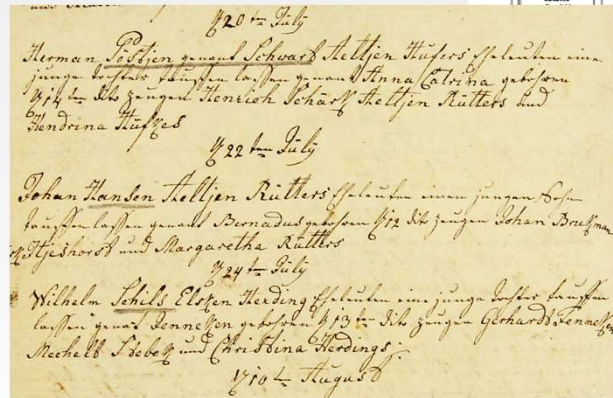 20ten July
Herman Pöstjen genant Schwart Aeltjen Hufers Eheleuten eine
junge tochter tauffen lassen genant Anna Catrina gebohren
14ten dito zeugen Henrich Schärs Aeltjen Rütters und
Hendrina
22ten July
Johan Hansen Aeltjen Rütters Eheleuten einen jungen Sohn
tauffen lassen genant Bernadus gebohren 12 dito zeugen Johan
und Margaretha Rütters
24ten July
Wilhelm Schils Elsken Herding Eheleuten eine junge tochter tauffen
lassen genant Jenneken gebohren 13ten dito zeugen Gerhardt
Mechelt und Christina Herdings
10ten August